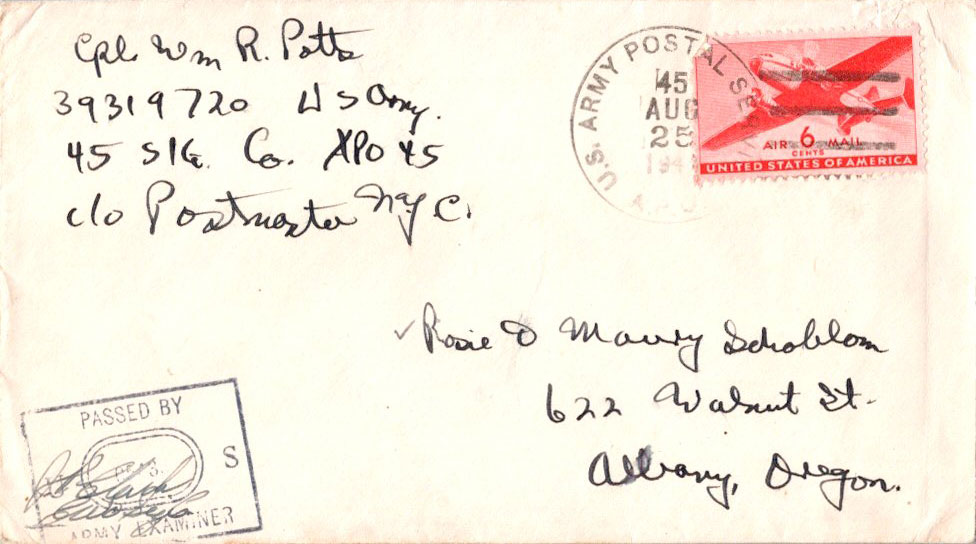 Cpl. Wm R. Potts
39319720 U S Army.
45 Sig. Co. APO 45
c/o Postmaster N.Y.C.
U.S. ARMY POSTAL SER
45
AUG
25
194
AIR 6 MAIL
CENTS
UNITED STATES OF AMERICA
Rosie D Maury Schoblom
622 Walnut St.
Albany, Oregon.
PASSED BY
S
ARMY EXAMINER